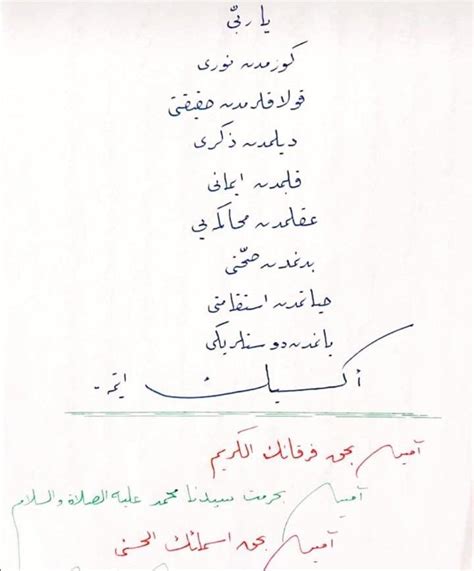 يا ربّى
كوزمدن نورى
قولاقلرمدن حقيقتى
ديلمدن ذكرى
قلبمدن ايمانى
عقلمدن محاكمه يى
بدنمدن صحّتى
حياتمدن استقامتى
يانمدن دوستلريكى
أكسيك ايتمه -
آمين بحق فرقانك الكريم
آمين بحرمت سيدنا محمد عليه الصلاة والسلام
آمين بحق اسمائك الحسنى